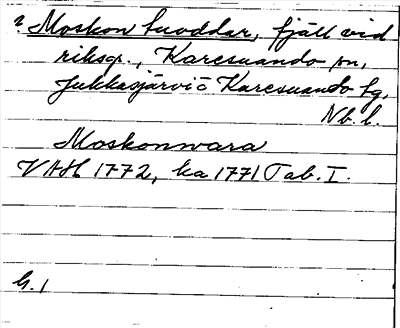 ? Moskon luoddar, fjäll vid
riksgr., Karesuando sn,
Jukkasjärvi o Karesuando tg,
Nb. l.
Moskonwara
VAH 1772, ka 1771 Tab. I.
G. 1